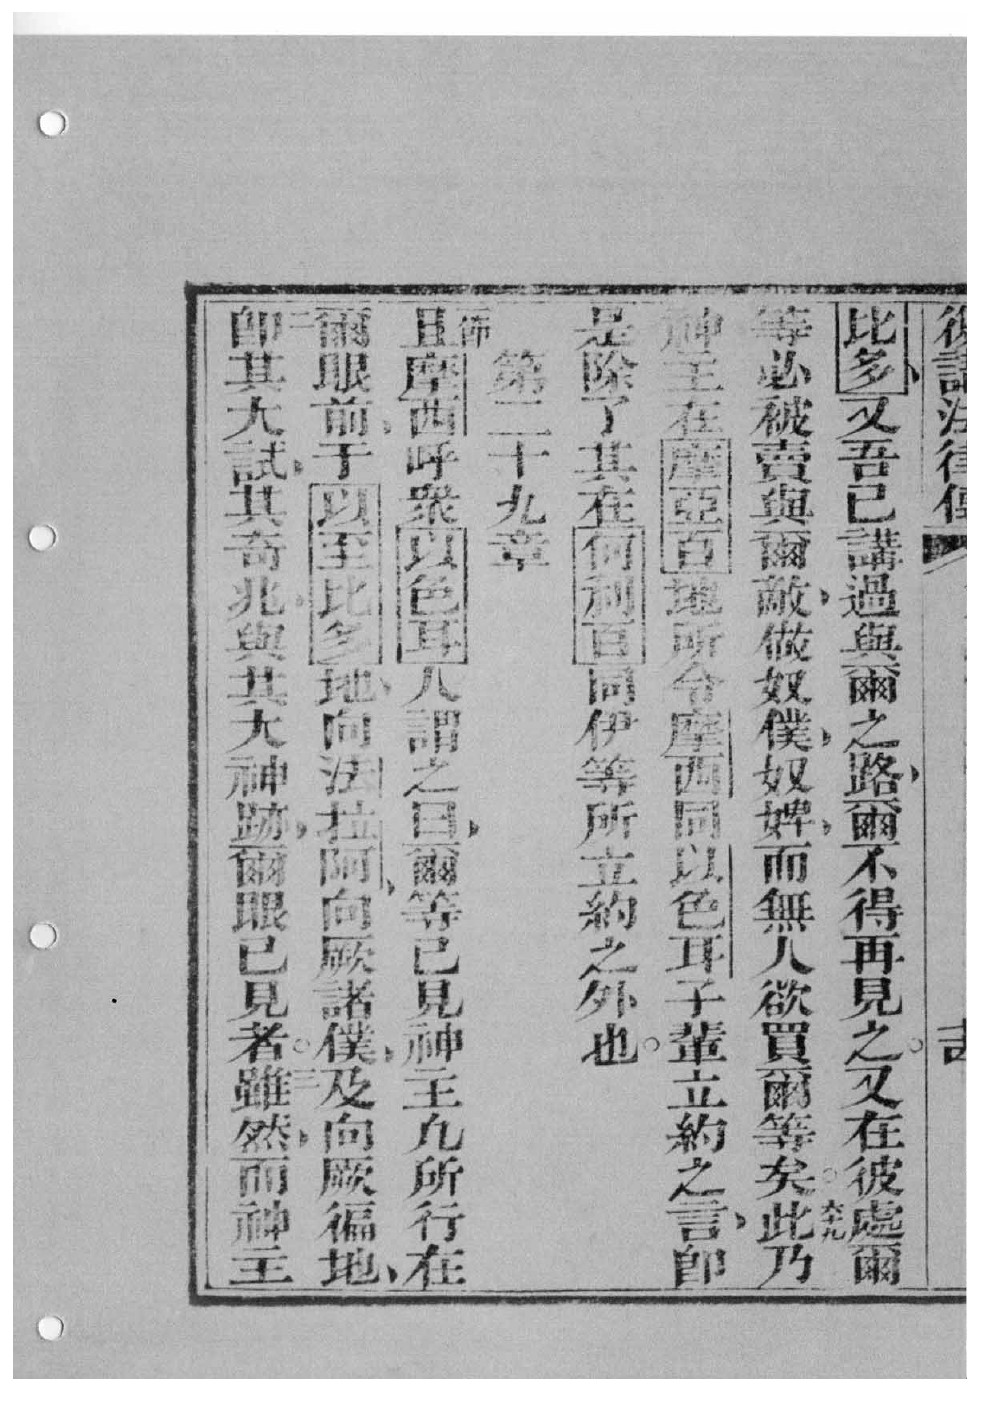 復講法律傳
比多又吾已講過與爾之路爾不得再見之又在彼處爾
等必被賣與爾敵做奴僕奴婢而無人欲買爾等矣此乃
神主在摩亞百地所令摩西同以色耳子輩立約之言卽
是除了其在何利百同伊等所立約之外也
第二十九章
且摩西呼衆以色耳人謂之曰爾等已見神主凡所行在
爾眼前于以至比多地向法拉阿向厥諸僕及向厥徧地
二
卽其大試其奇兆與其大神跡爾眼已見者三雖然而神主